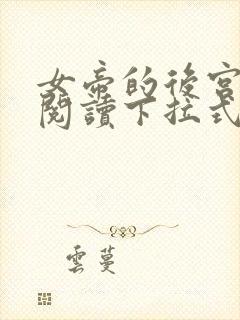 女帝的後宮
閱讀下拉式
雲蔓